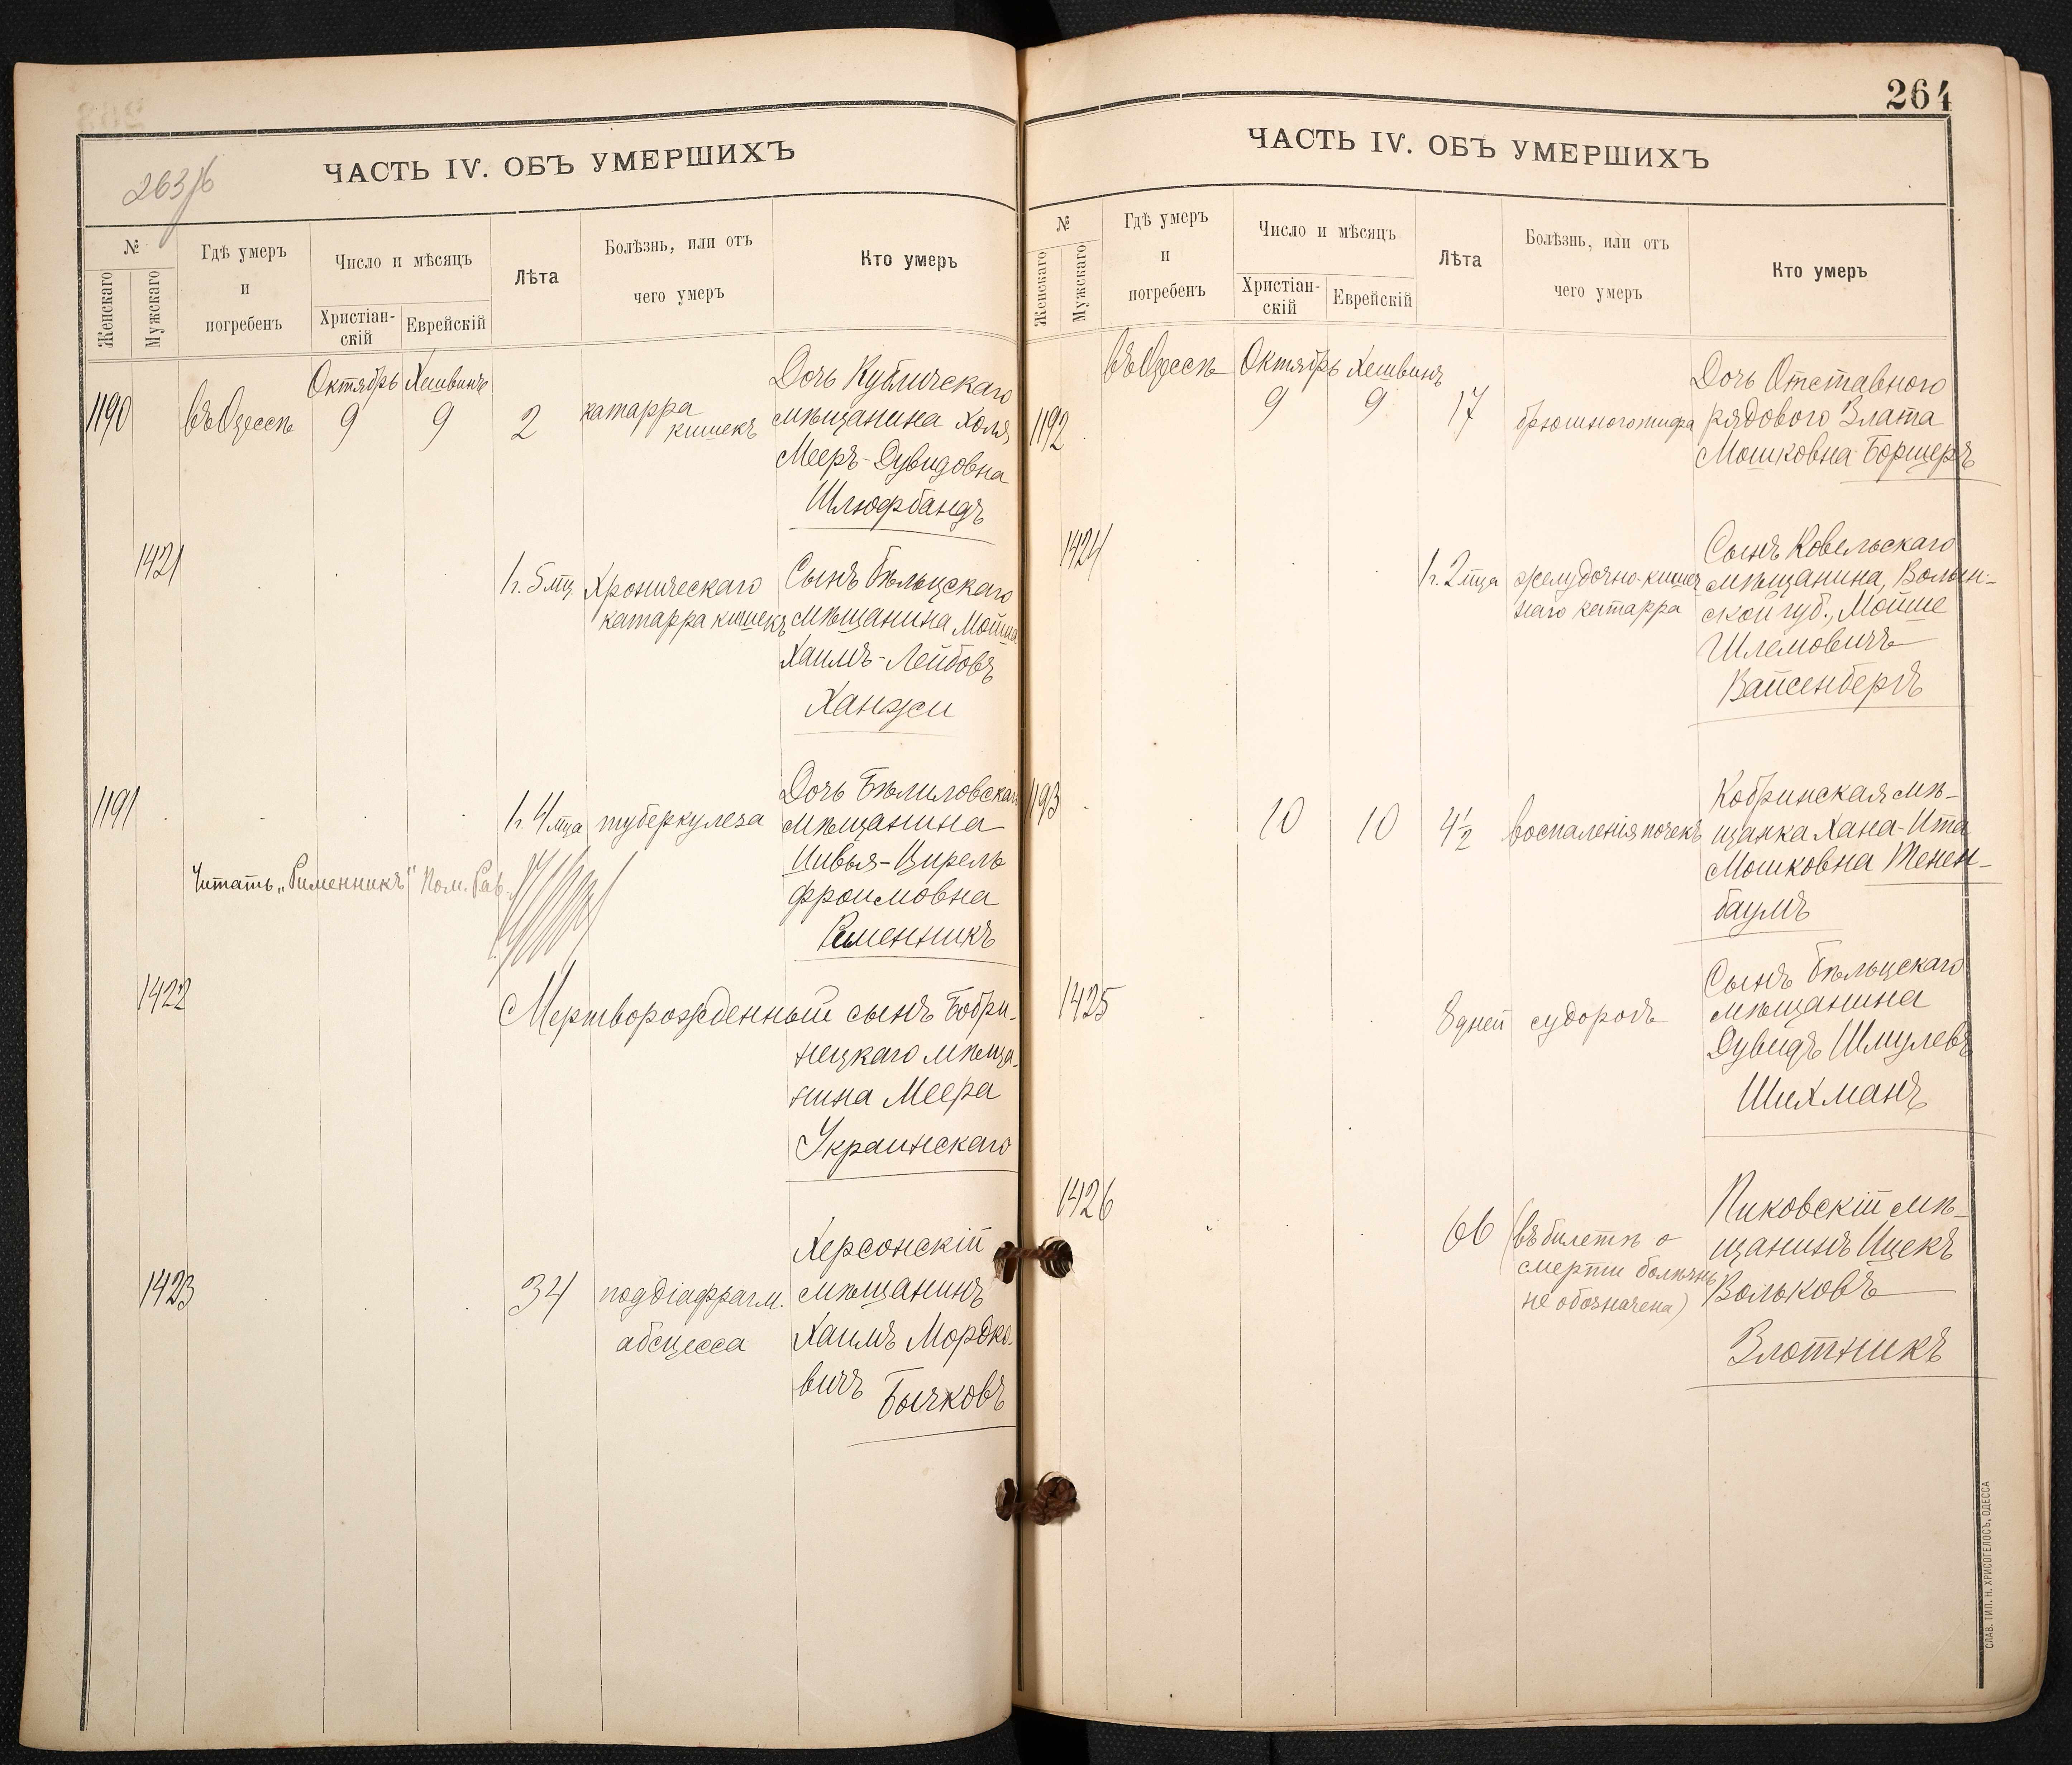 263/б
ЧАСТЬ IV. ОБЪ УМЕРШИХЪ
№
Женскаго
Мужскаго
Гдѣ умеръ
и
погребенъ
Число и мѣсяцъ
Христіан-
скій
Еврейскій
Лѣта
Болѣзнь, или отъ
чего умеръ
Кто умеръ
Октябрь Хешвинъ
1190 въ Одессѣ 9 9 2 катарра
кишекъ
Дочь Кубличскаго
мѣщанина Холя
Мееръ-Дувидовна
Шлюфбандъ
1421 1 г. 5 мц. Хроническаго
катарра кишекъ
Сынъ Бѣльцскаго
мѣщанина Мойша
Хаимъ-Лейбовъ
Ханжи
1191 1 г. 4 мца туберкулеза
Дочь Бѣлиловскаго
мѣщанина
Цивья-Цирель
Фроимовна
Рименникъ
Читать „Рименникъ" Пом. Рав.
1422 Мертворожденный сынъ Бобри-
нецкаго мѣща-
нина Меера
Украинскаго
1423 34 поддіафрагм.
абсцесса
Херсонскій
мѣщанинъ
Хаимъ Мордко-
вичъ Бычковъ
264
ЧАСТЬ IV. ОБЪ УМЕРШИХЪ
№
Женскаго
Мужскаго
Гдѣ умеръ
и
погребенъ
Число и мѣсяцъ
Христіан-
скій
Еврейскій
Лѣта
Болѣзнь, или отъ
чего умеръ
Кто умеръ
въ Одессѣ Октябрь Хешвинъ
1192 9 9 17 брюшного тифа
Дочь Отставного
рядового Злата
Мошковна Борщеръ
1424 1 г. 2 мца желудочно-кишеч
наго катарра
Сынъ Ковельскаго
мѣщанина, Волын-
ской губ., Мойше
Шлемовичъ
Вайсенбергъ
1193 10 10 4½ воспаленія почекъ
Кобринская мѣ-
щанка Хана-Ита
Мошковна Тенен-
баумъ
1425 8 дней судорогъ
Сынъ Бѣльцскаго
мѣщанина
Дувидъ Шмулевъ
Шихманъ
1426 66 (въ билетѣ о
смерти болѣзнь
не обозначена)
Пиковскій мѣ-
щанинъ Ицекъ
Вольковъ
Злотникъ
СЛАВ. ТИП. Н. ХРИСОГЕЛОСЪ, ОДЕССА